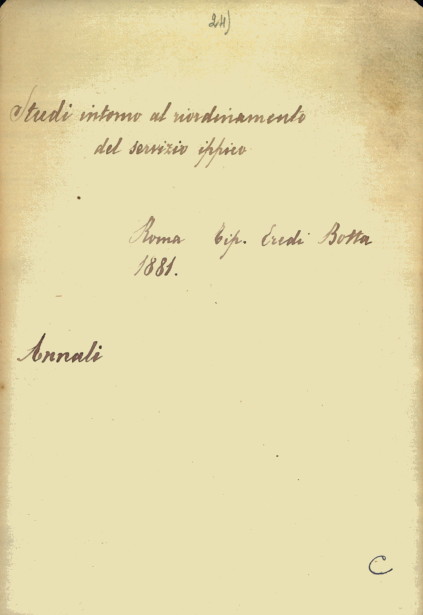 24)
Studi intorno al riordinamento
del servizio ippico
Roma Tip. Eredi Botta
1881.
Annali
C